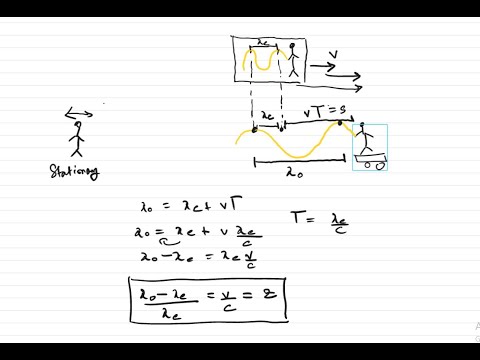 λe
v
vT = s
λe
Stationary
λo
λo = λe + vT
T = λe/c
λo = λe + v λe/c
λo - λe = λe v/c
λo - λe / λe = v/c = z